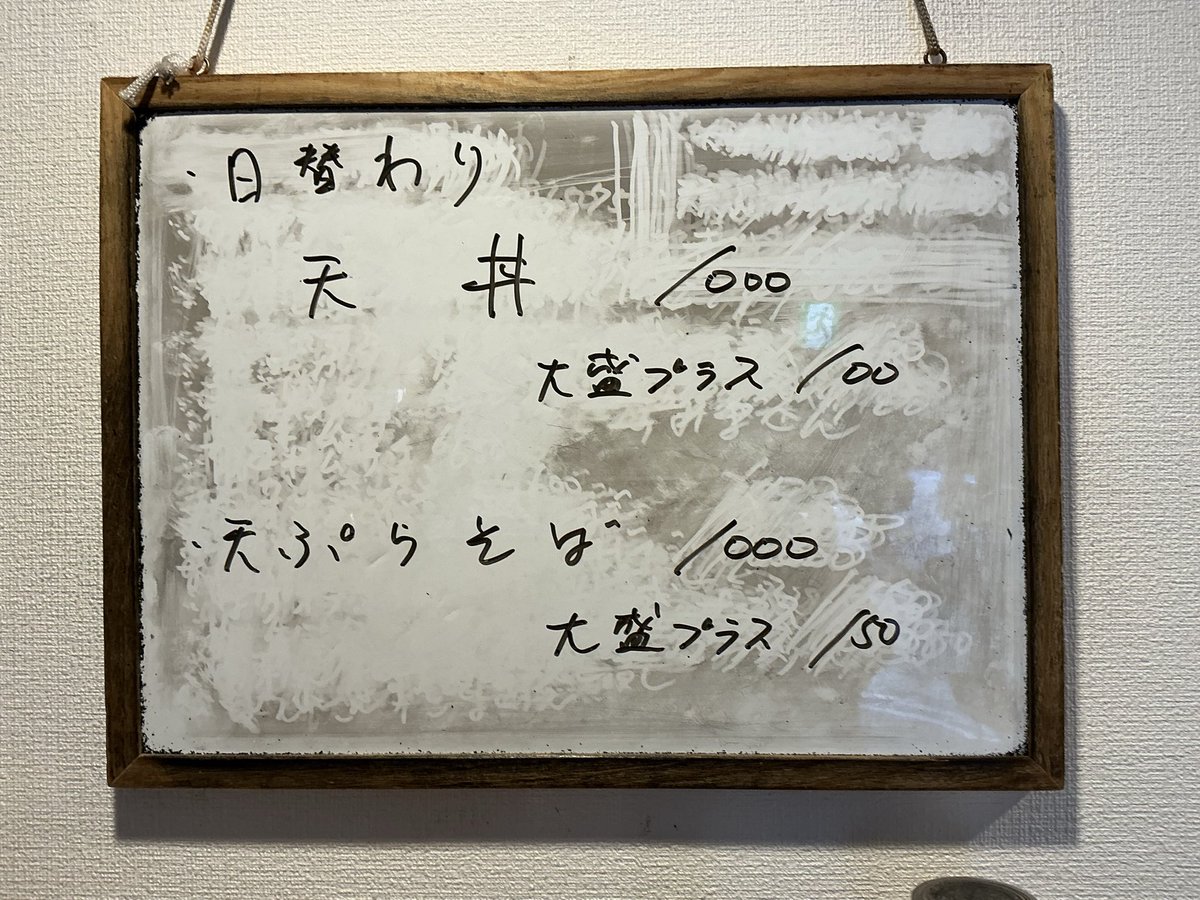 ・日替わり
天丼 1000
大盛プラス 100
・天ぷらそば 1000
大盛プラス 150